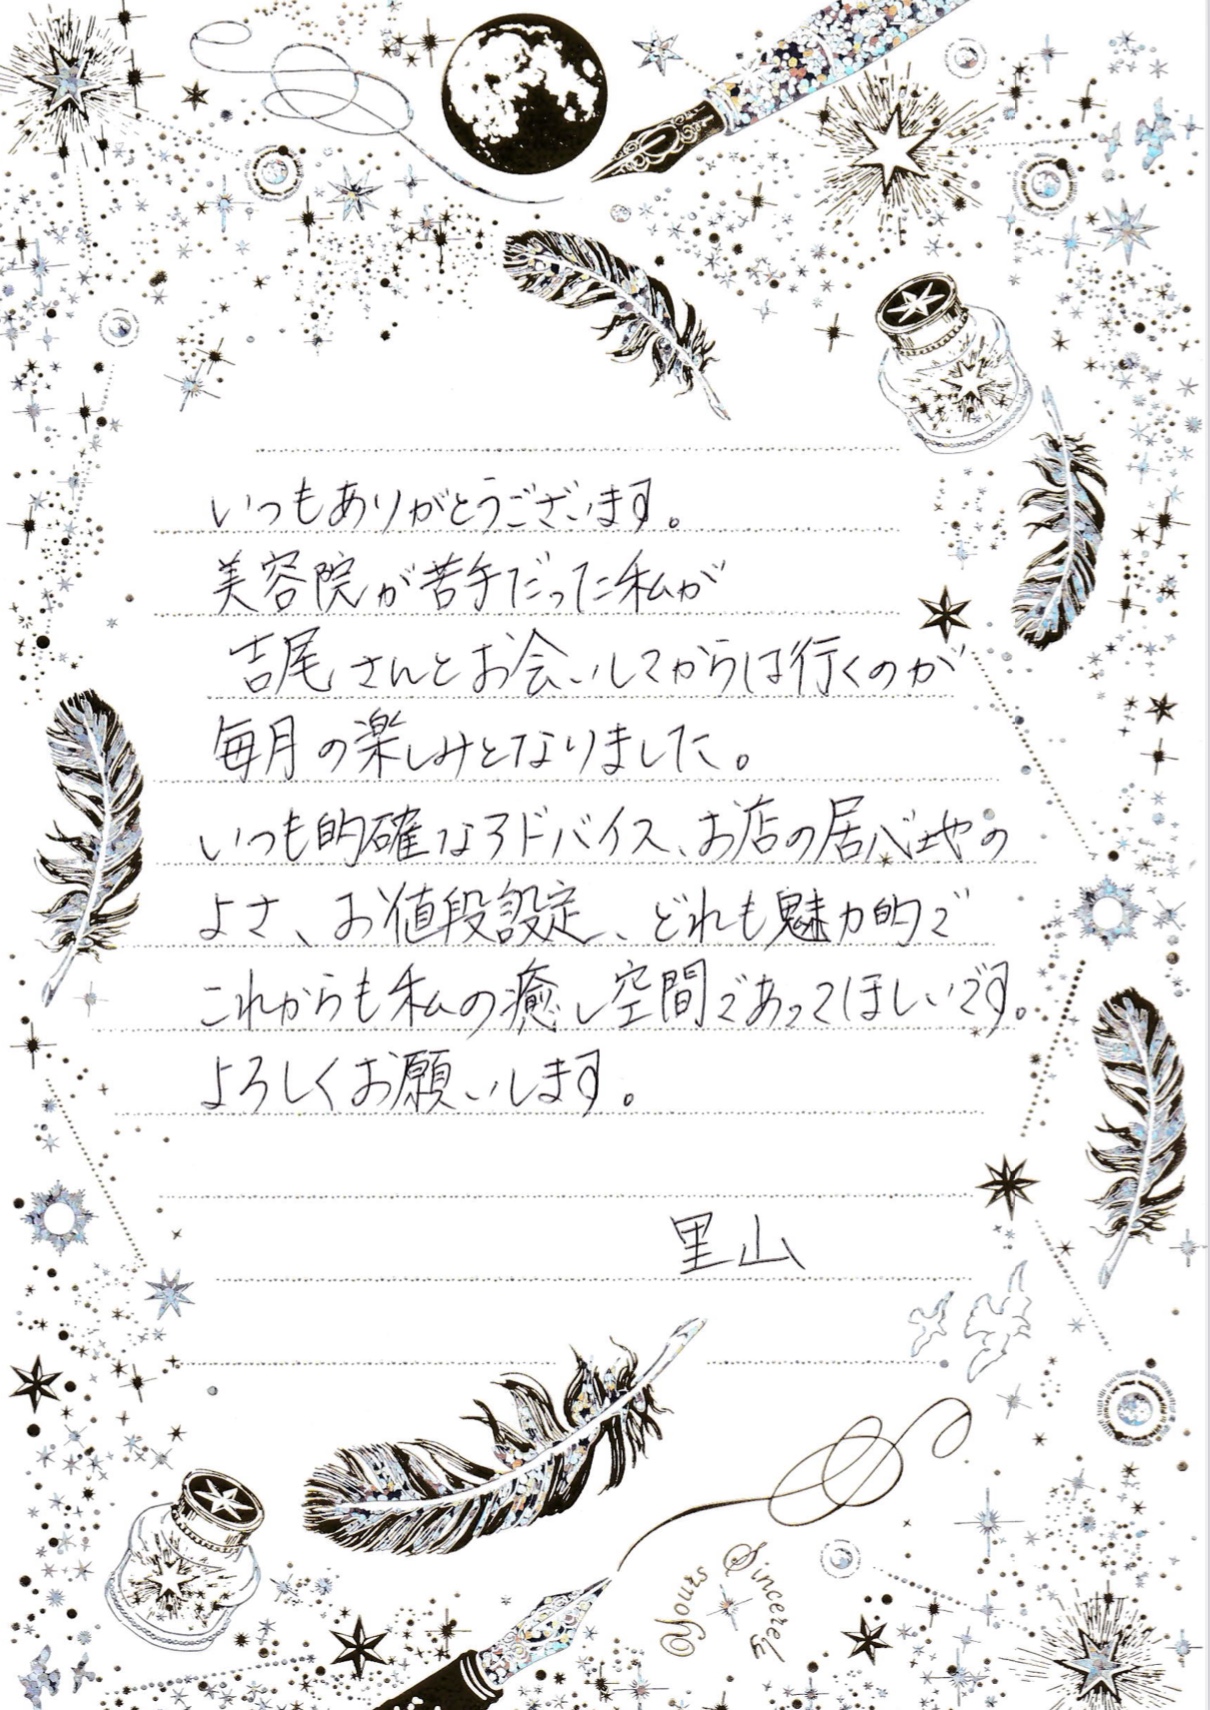 いつもありがとうございます。
美容院が苦手だった私が
吉尾さんとお会いしてからは行くのが
毎月の楽しみとなりました。
いつも的確なアドバイス、お店の居心地の
よさ、お値段設定、どれも魅力的で
これからも私の癒し空間であってほしいです。
よろしくお願いします。
里山
Yours Sincerely